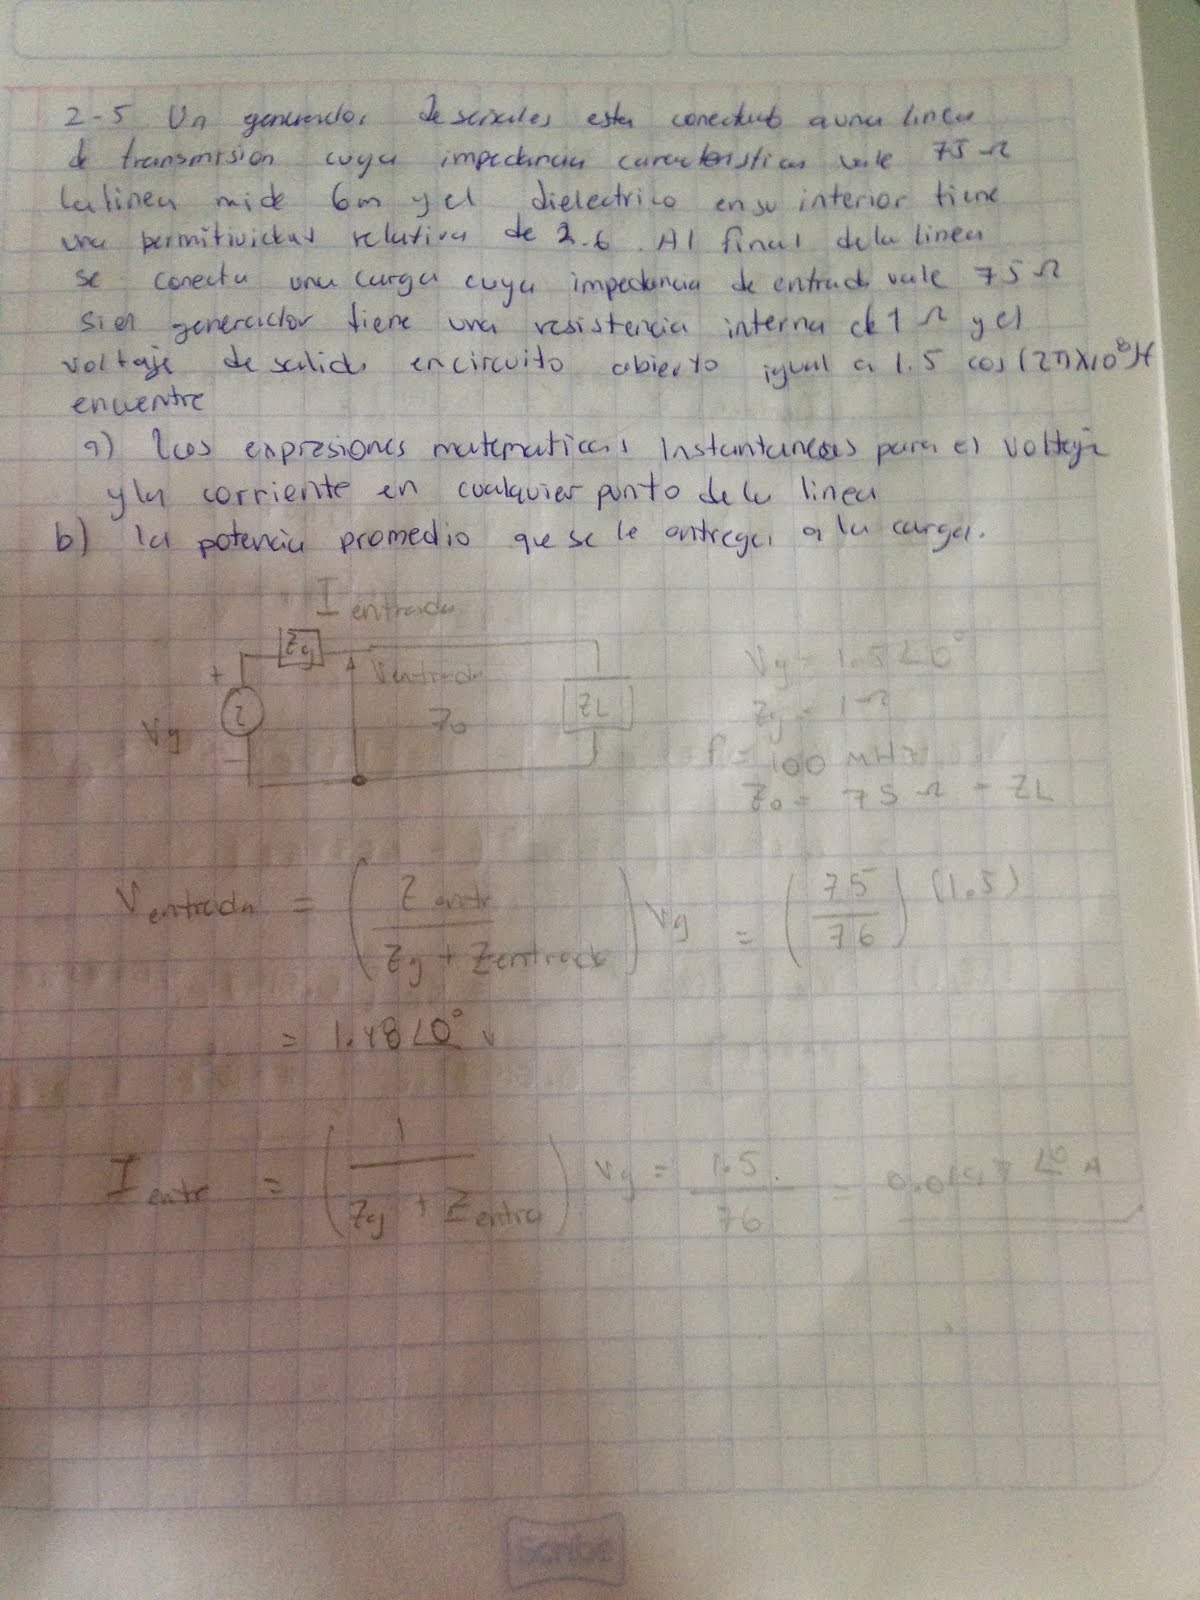 2-5 Un generador de señales esta conectado a una linea
de transmision cuya impedancia caracteristica vale 75 Ω
La linea mide 6m y el dielectrico en su interior tiene
una permitividad relativa de 2.6. Al final de la linea
se conecta una carga cuya impedancia de entrada vale 75 Ω
si el generador tiene una resistencia interna de 1 Ω y el
voltaje de salida en circuito abierto igual a 1.5 cos (2π×10⁸)t
encuentre
a) Las expresiones matematicas instantaneas para el voltaje
y la corriente en cualquier punto de la linea
b) la potencia promedio que se le entrega a la carga.
I entrada
Zg
+ V entrada
Vg Z0 ZL
−
Vg = 1.5∠0°
Zg = 1 Ω
f = 100 MHz
Z0 = 75 Ω = ZL
V entrada = (Z entr / Zg + Z entrada) Vg = (75 / 76) (1.5)
= 1.48∠0° v
I entr = (1 / Zg + Z entra) Vg = 1.5 / 76 = ∠0° A
Scribe